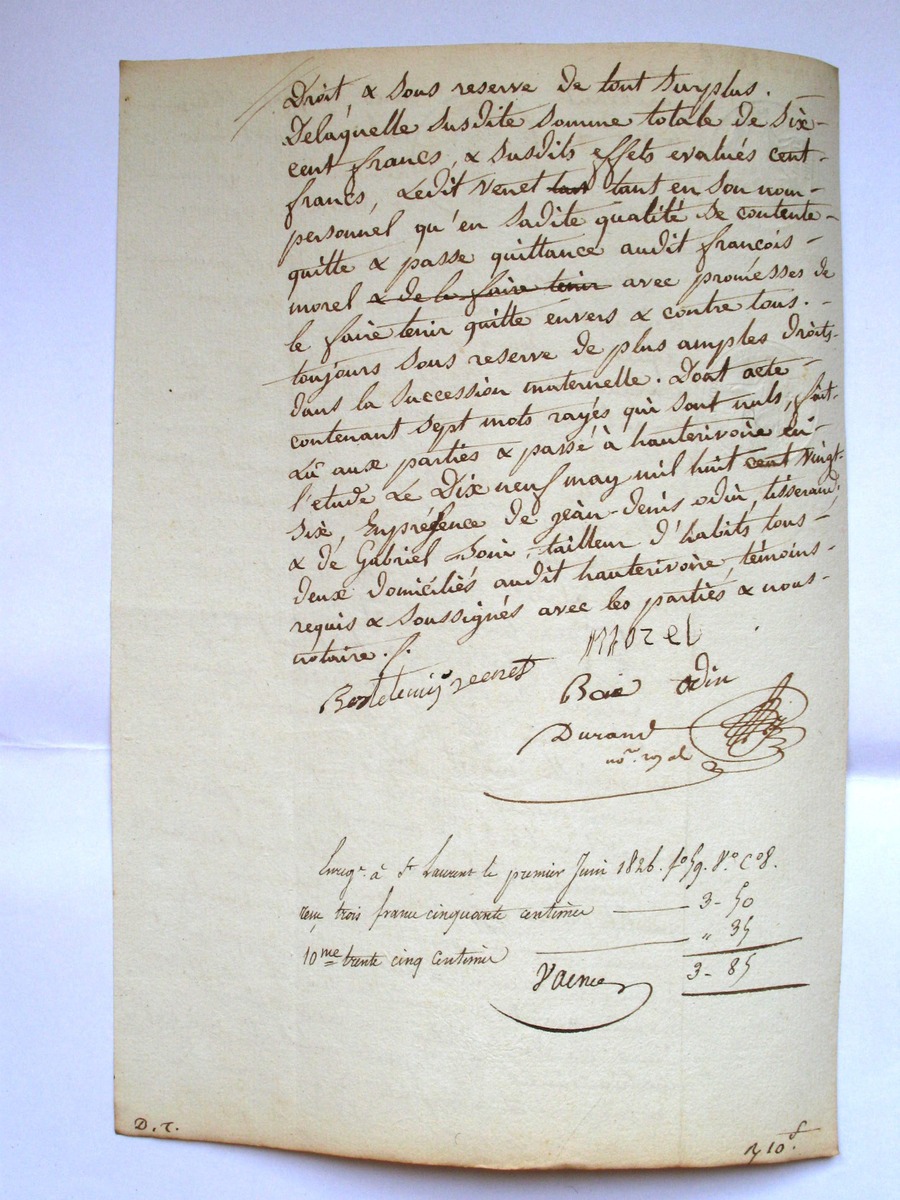 Droit, & sous reserve de tout surplus.
Delaquelle susdite somme totale de six-
cent francs, & susdits effets evalués cent-
francs, Ledit Venet tant tant en son nom-
personnel qu'en sadite qualité se contente-
quitte & passe quittance audit françois-
morel & de le faire tenir avec promesses de
le faire tenir quitte envers & contre tous.-
toujours sous reserve de plus amples droits-
dans la succession maternelle. Dont acte-
contenant sept mots rayés qui sont nuls, fait-
Lû aux parties & passé à hauterivoire en-
l'etude Le Dix neuf may mil huit cent vingt-
six, En présence de jean-denis odin, tisserand,
& de Gabriel Boin, tailleur d'habits, tous-
deux domiciliés audit hauterivoire, témoins-
requis & soussignés avec les parties & nous-
notaire./.
morel
venet
odin
Durand
no.re
Enreg.é à St Laurent le premier Juin 1826. fo 59. Vo. Co 8.
trois francs cinquante centimes 3-50
10me trente cinq centimes " 35
3-85
D. r.
10